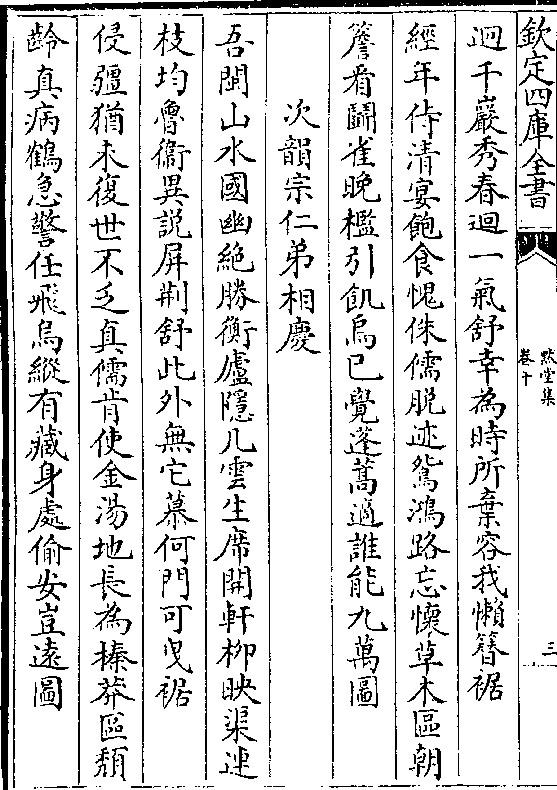 欽定四庫全書
默堂集
卷十
三
迴千巖秀春迴一氣舒幸為時所棄容我懶簪裾
經年侍清宴飽食愧侏儒脫迹鴛鴻路忘懷草木區朝
簷看鬭雀晚檻引飢烏已覺蓬蒿適誰能九萬圖
次韻宗仁弟相慶
吾閩山水國幽絶勝衡廬隱几雲生席開軒柳映渠連
枝均魯衛異説屏荆舒此外無它慕何門可曳裾
侵疆猶未復世不乏真儒肯使金湯地長為榛莽區頽
齡真病鶴急警任飛烏縱有藏身處偷安豈遠圖